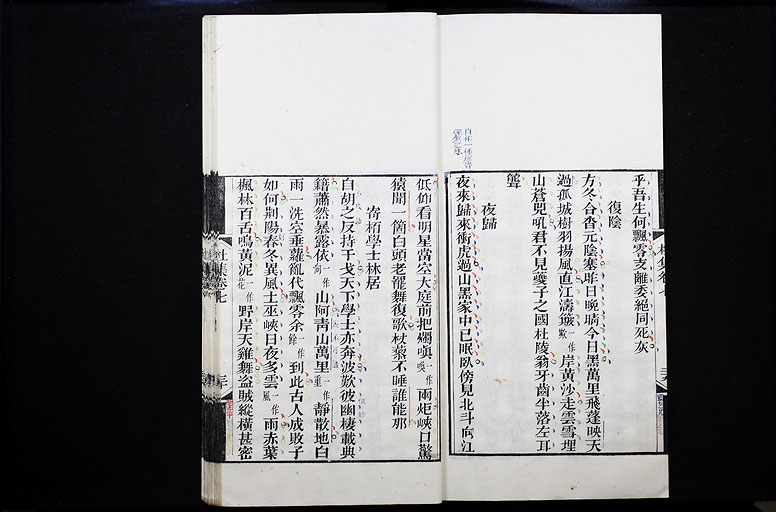 乎吾生何飄零支離委絕同死灰
復陰
方冬合沓元陰塞昨日晚晴今日黑萬里飛蓬映天
過孤城樹羽揚風直江濤簸一作欺岸黃沙走雲雪埋
山蒼兕吼君不見夔子之國杜陵翁牙齒半落左耳
聾
夜歸
夜來歸來衝虎過山黑家中已眠臥傍見北斗向江
低仰看明星當空大庭前把燭嗔一作唤兩炬峽口驚
猿聞一箇白頭老罷舞復歌杖藜不睡誰能那
寄栢學士林居
自胡之反持干戈天下學士亦奔波歎彼幽棲載典
籍蕭然暴露依一作向山阿青山萬里一作重靜散地白
雨一洗空垂蘿亂代飄零余一作餘到此古人成敗子
如何荆陽春冬異風土巫峽日夜多雲一作風雨赤葉
楓林百舌鳴黃泥一作花野岸天雞舞盜賊縱橫甚密
杜集卷七